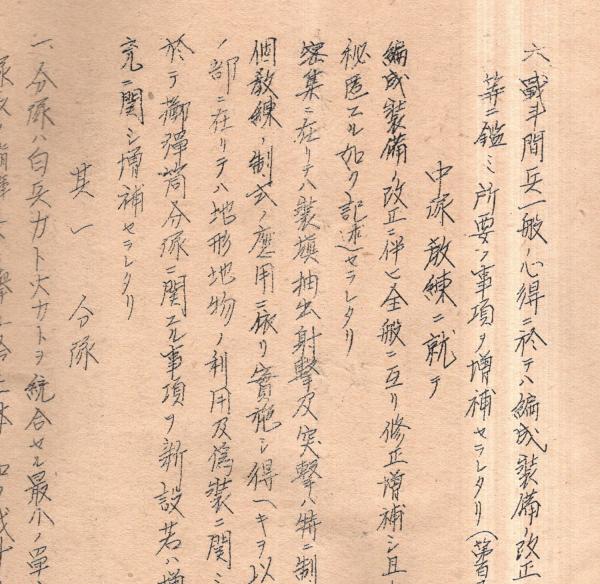 六、戦斗間兵一般ノ心得ニ於テハ編成装備ノ改正
等ニ鑑ミ所要ノ事項ヲ増補セラレタリ(第百
中隊教練ニ就テ
編成装備ノ改正ニ伴ヒ全般ニ亙リ修正増補シ且
秘匿スル如ク記述セラレタリ
密集ニ在リテハ装填抽出射撃及突撃ハ特ニ制
個教練ノ制式ノ應用ニ依リ實施シ得ヘキヲ以
ノ部ニ在リテハ地形地物ノ利用及偽装ニ関シ
於テ擲弾筒分隊ニ関スル事項ヲ新設若ハ増
充ニ関シ増補セラレタリ
其一 分隊
一、分隊ハ白兵力ト火力トヲ統合セル最小ノ單